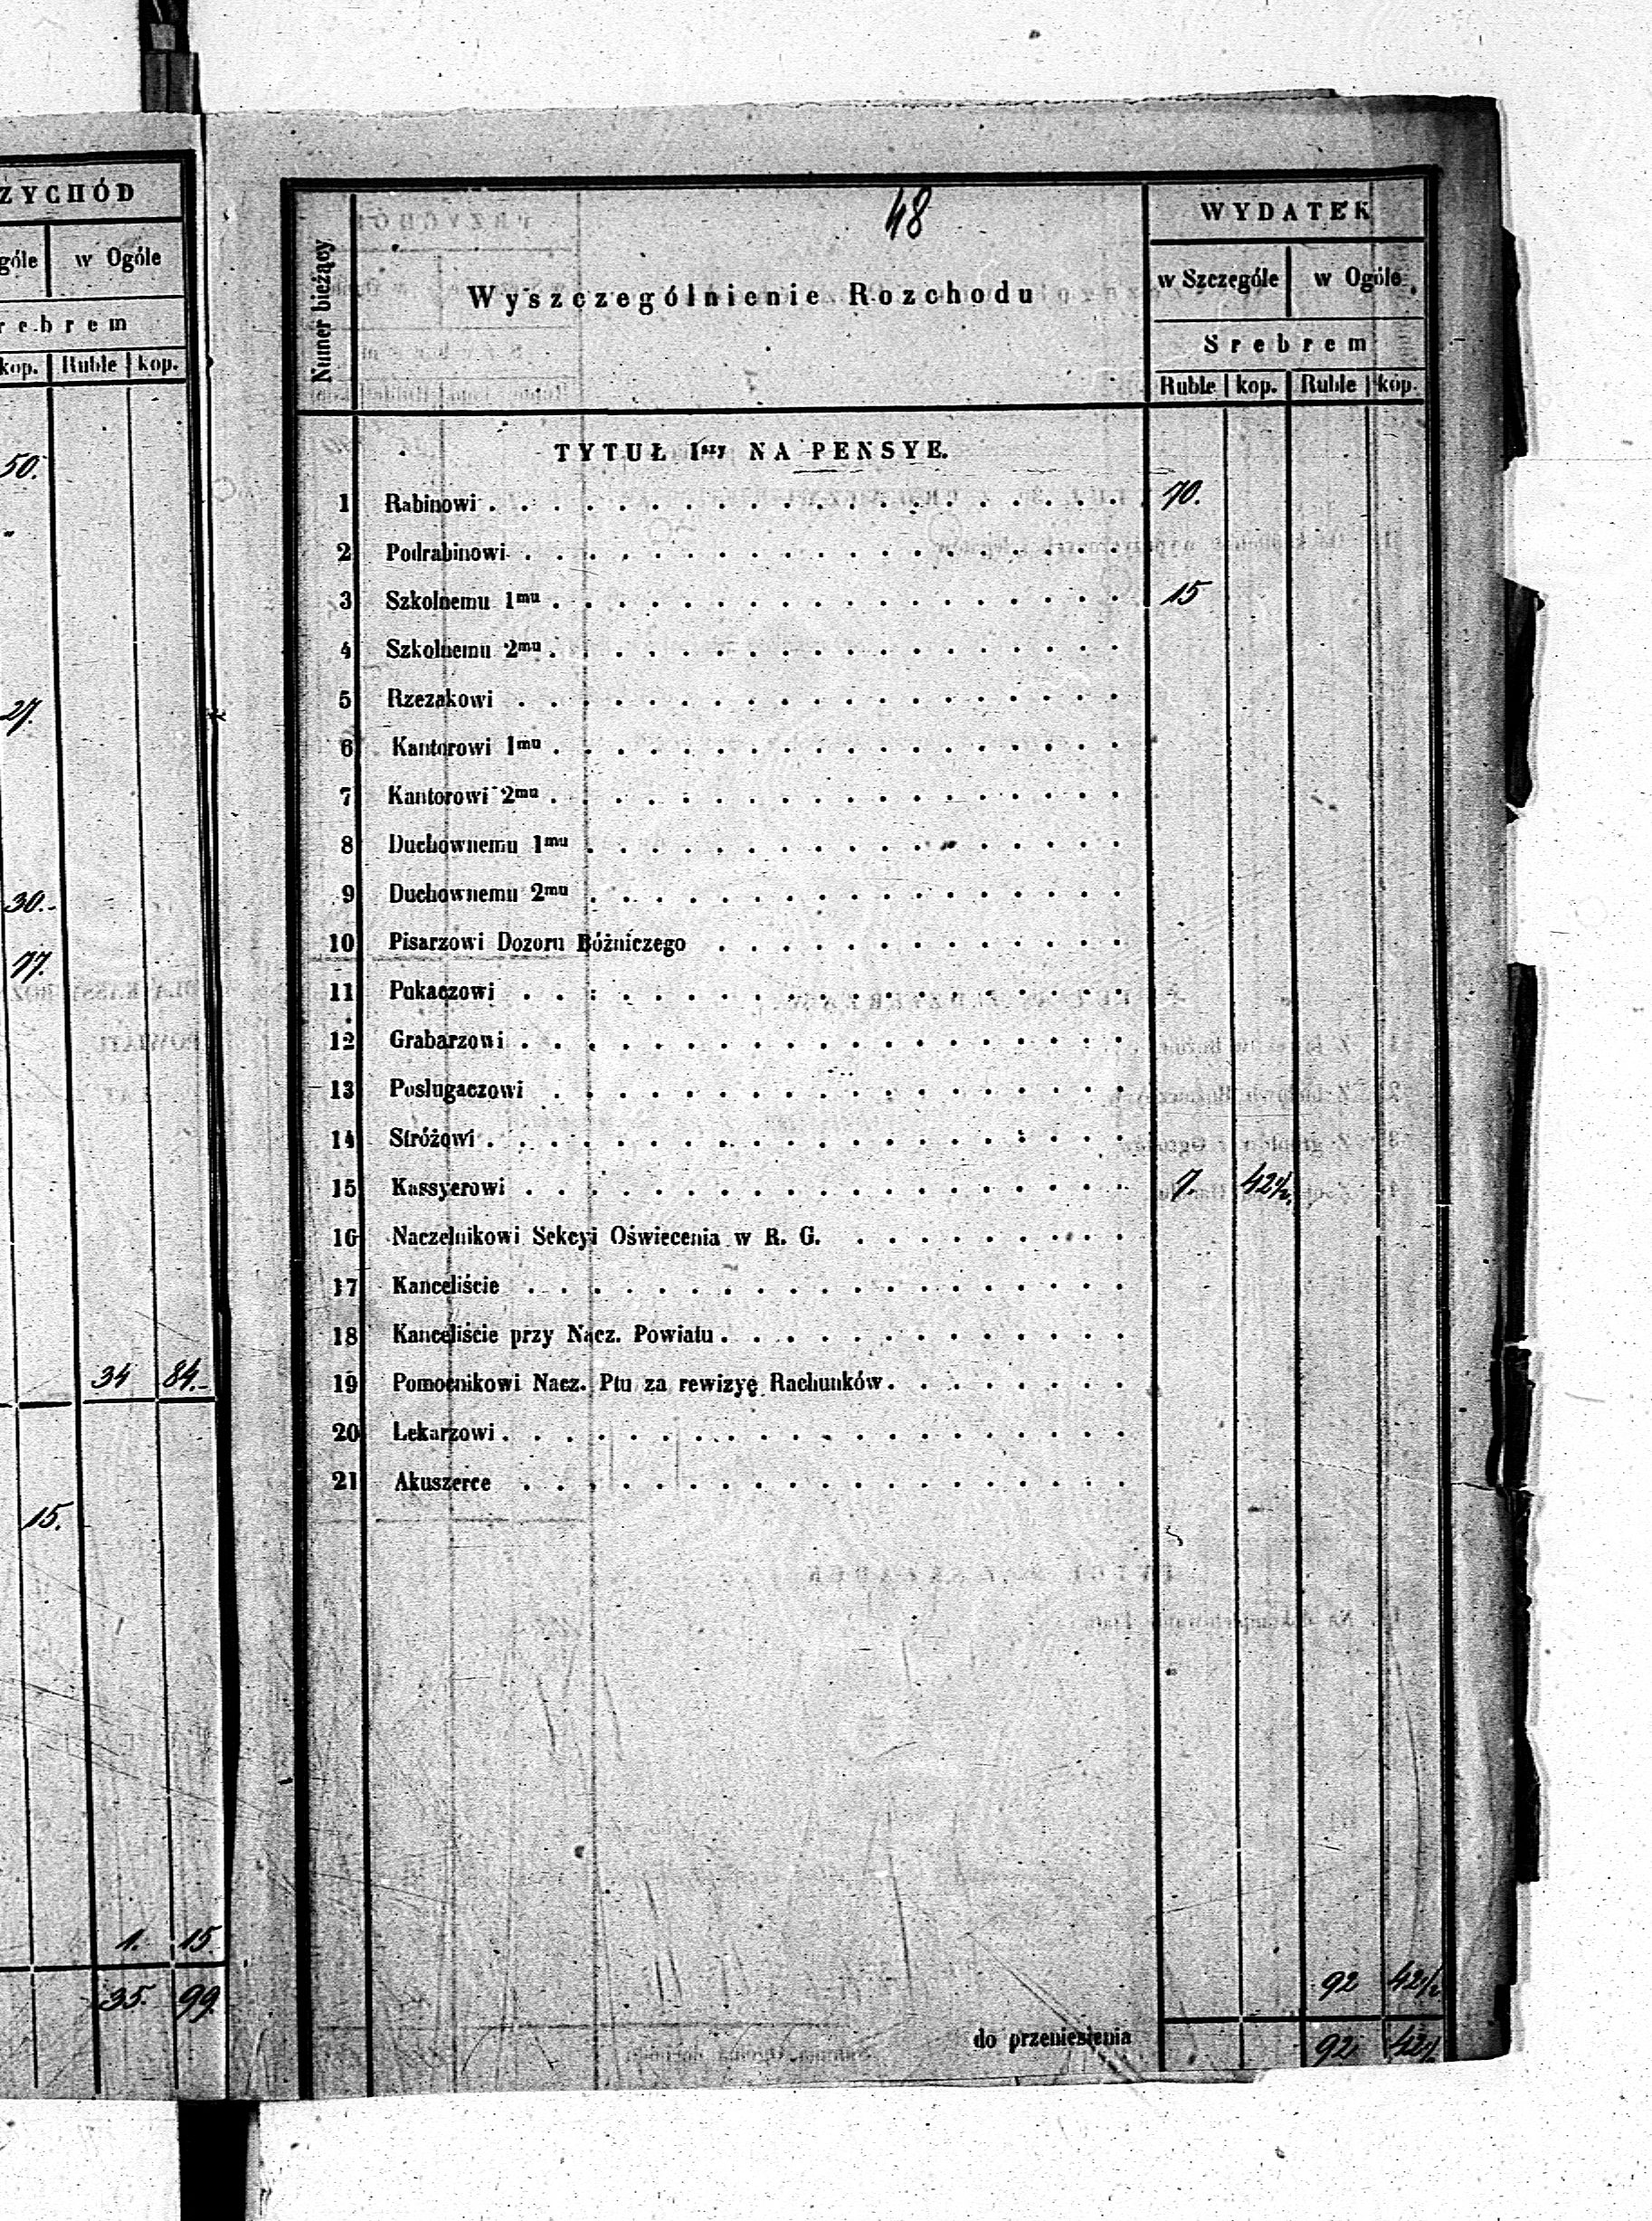 ZYCHÓD
góle w Ogóle
rebrem
kop. Ruble kop.
50.
27.
30.-
77.
34 84.-
15.
1. 15
35. 99.
48
Numer bieżący
Wyszczególnienie Rozchodu
WYDATEK
w Szczególe w Ogóle
Srebrem
Ruble kop. Ruble kop.
TYTUŁ Iszy NA PENSYE.
1 Rabinowi . . . 70.
2 Podrabinowi . . .
3 Szkolnemu 1mu . . . 15
4 Szkolnemu 2mu . . .
5 Rzezakowi . . .
6 Kantorowi 1mu . . .
7 Kantorowi 2mu . . .
8 Duchownemu 1mu . . .
9 Duchownemu 2mu . . .
10 Pisarzowi Dozoru Bóżniczego . . .
11 Pukaczowi . . .
12 Grabarzowi . . .
13 Posługaczowi . . .
14 Stróżowi . . .
15 Kassyerowi . . . 7. 42½
16 Naczelnikowi Sekcyi Oświecenia w R. G. . . .
17 Kanceliście . . .
18 Kanceliście przy Nacz. Powiatu . . .
19 Pomocnikowi Nacz. Ptu za rewizyę Rachunków . . .
20 Lekarzowi . . .
21 Akuszerce . . .
92 42½
do przeniesienia 92 42½